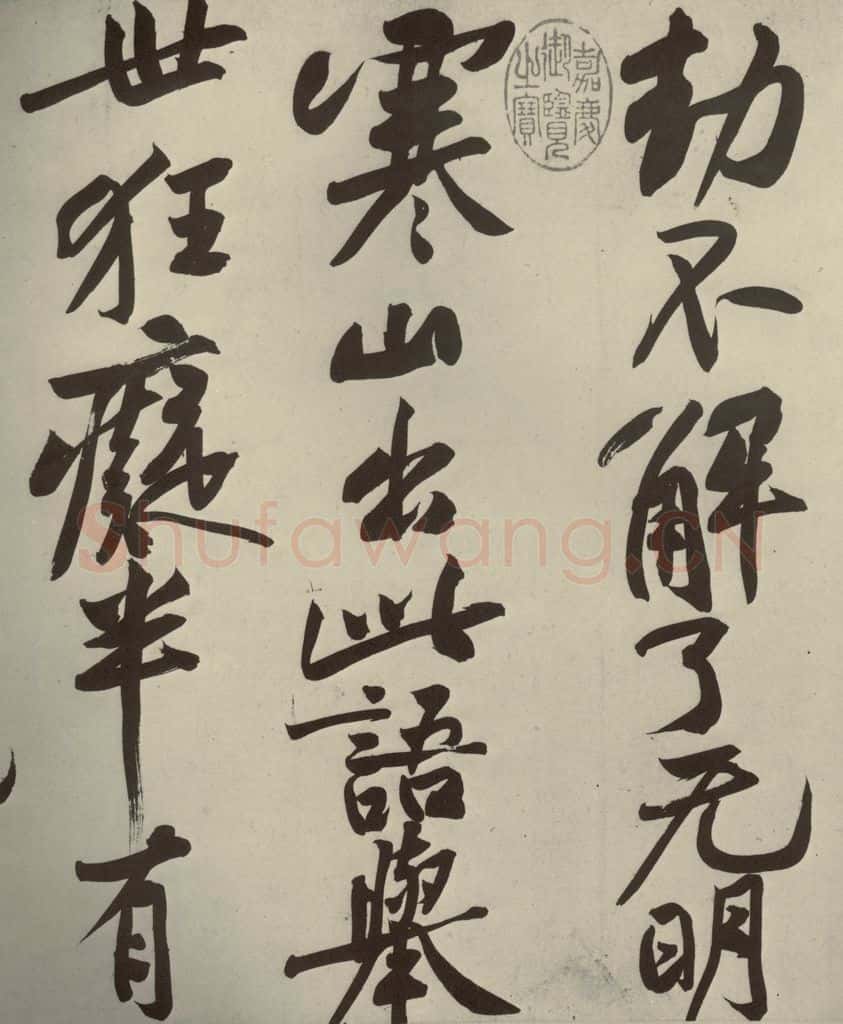 劫不解了无明
嘉慶
御覽
之寶
寒山出此語舉
世狂癡半有
Shufawang.CN